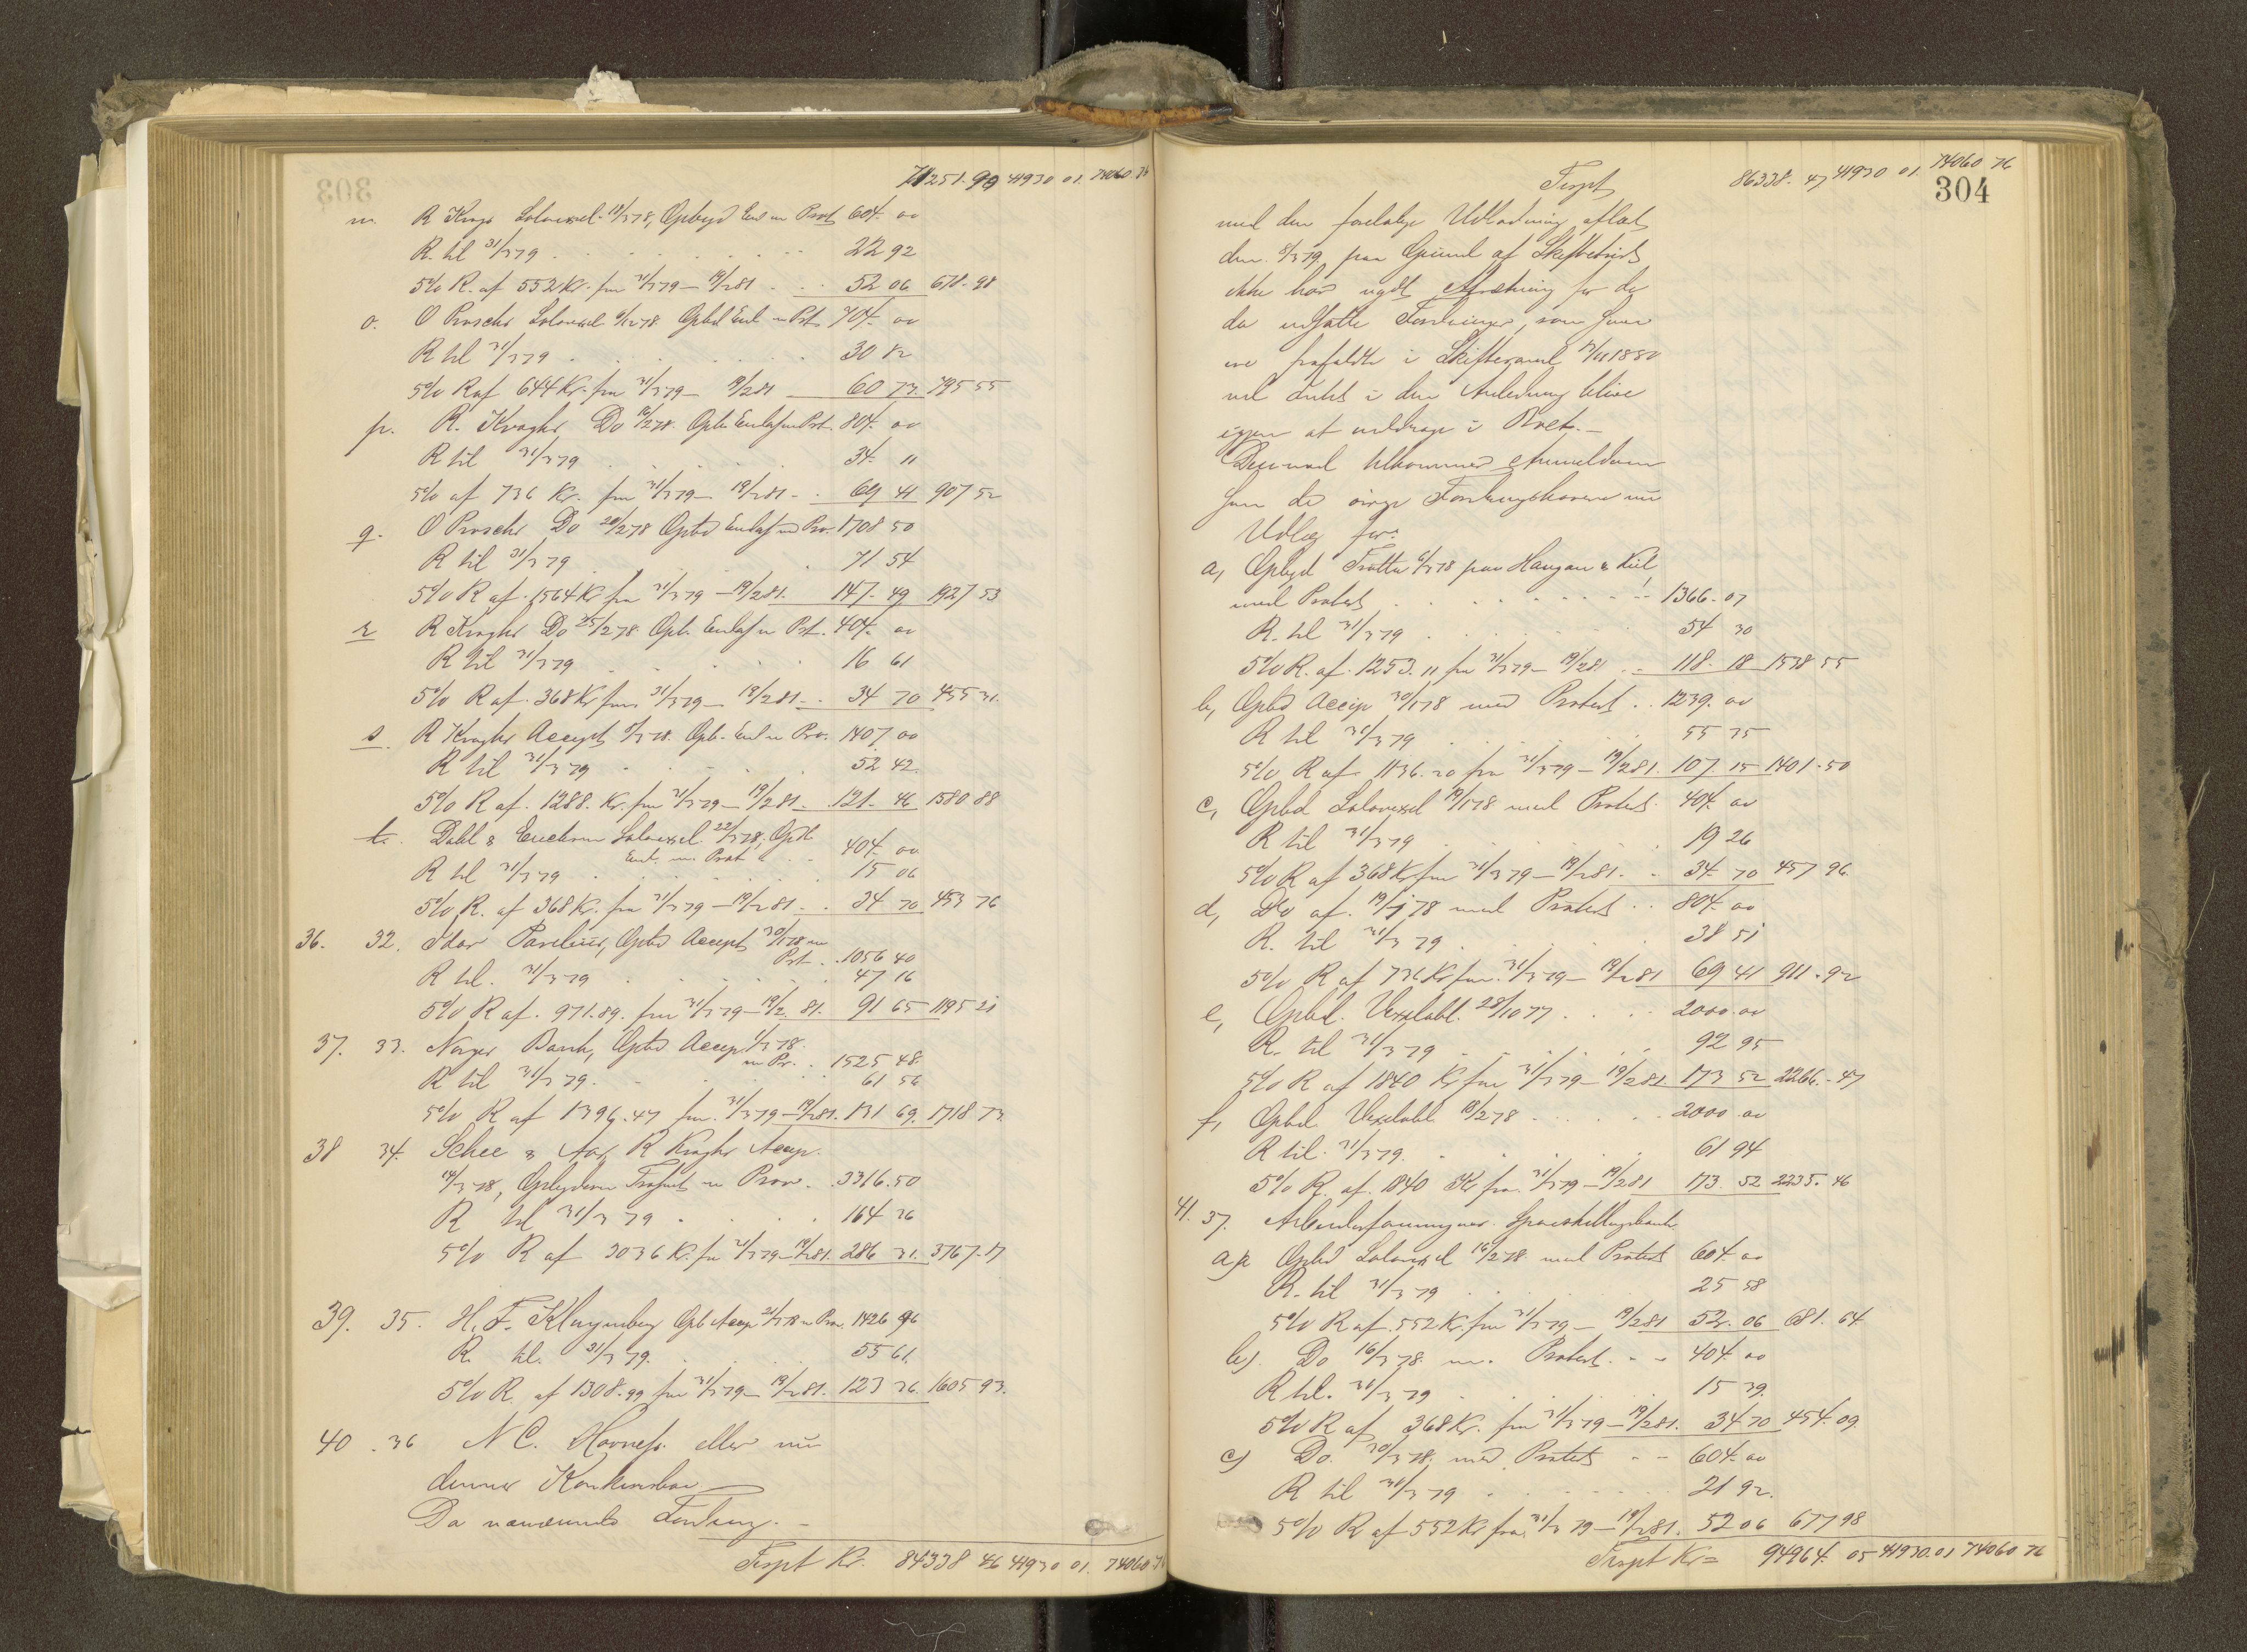 71251. 90 41930 01. 74060 76
m. R Kroghs Solavexel 18/3 78, Opbyd End m Prot 604. 00
R. til 31/3 79 . . . 22 92
5% R. af 552 Kr. fra 31/3 79 – 19/2 81 . . 52 06 678. 98
o. O Proschs Solavexel 6/12 78. Opbd End m Prt 704. 00
R til 31/3 79 . . . 30 82
5% R af 644 Kr. fra 31/3 79 – 19/2 81 60 73. 795 55
p. R. Kroghs Do 16/2 78. Opb Endos m Prt. 804. 00
R til 31/3 79 . . . 34. 11
5% af 736 Kr. fra 31/3 79 – 19/2 81 – . 69 41 907 52
q. O Proschs Do 20/2 78 Opbd Endos m Pro. 1708 50
R til 31/3 79 . . . 71 54
5% R af 1564 Kr fra 31/3 79 – 19/2 81. 147. 49 1927 53
r R Kroghs Do 25/2 78 Opb. Endos m Prt. 404. 00
R til 31/3 79 . . . 16 61
5% R af 368 Kr fra 31/3 79 – 19/2 81 – . 34 70 455 31.
s. R Kroghs Accept 5/3 78. Opb. End m Pro. 1407 00
R til 31/3 79 . . . 52 42.
5% R af 1288. Kr. fra 31/3 79 – 19/2 81 – . 121. 46 1580 88
t. Dahl & Solavexel 22/3 78, Opb
End. m. Prot . . 404. 00
R til 31/3 79 . . . 15 06
5% R. af 368 Kr. fra 31/3 79 – 19/2 81 – . 34 70 453 76
36. 32. Opbd Accept 30/1 78 m
Prt . . 1056 40
R til. 31/3 79 . . . 47 16
5% R af. 971. 89. fra 31/3 79 – 19/2. 81. 91 65 1195 21
37. 33. Norges Bank, Opbd Accept 1/3 78.
m Pr. . 1525 48.
R til 31/3 79. . . . 61 56
5% R af 1396. 47 fra. 31/3 79 – 19/2 81. 131 69. 1718 73.
38 34. Schee & Aas, R Kroghs Accp.
14/3 78, Opbyderen Trafust m Prov. . 3316. 50
R til 31/3 79 . . . 164 36
5% R af 3036 Kr. fra 31/3 79 – 19/2 81. 286 31. 3767. 17
39. 35. H. F. Klingenberg Opb Accp 21/3 78 m Pro. 1426 96
R. til. 31/3 79. . . . 55 61.
5% R. af 1308. 99 fra 31/3 79 – 19/2 81. 123 36. 1605 93.
40. 36 N C. Havnes. eller nu
dennes Konkursbo.
Da nævnte Fordring. –
Trspt Kr. 84338 46 41930 01. 74060 76
Trspt 86338. 47 41930 01. 74060 76
304
med den foreløbige Udlodning afsluttet
den 8/3 79, paa Grund af Skifterets
ikke har nydt Afretning for de
da udsatte Fordringer, som han
var frafaldt i Skiftesaml 13/11 1880
vil i den Anledning blive
igjen at meddrage i Boet. –
Desuden tilkommer Anmelderen
som de øvrige Fordringshavere nu
Udlæg for:
a, Opbyd Tratte 6/3 78 paa Haugan & Kiil,
med Protest . . . 1366. 07
R. til 31/3 79 . . . 54 30
5% R. af. 1253. 11 fra 31/3 79 – 19/2 81 . . 118. 18 1538 55
b, Opbd Accep 30/1 78 med Protest . . 1239. 00
R til 31/3 79 . . . 55 35
5% R af. 1136. 20 fra 31/3 79 – 19/2 81. 107. 15 1401. 50
c, Opbd Solavexel 19/1 78 med Protest. 404. 00
R til 31/3 79 . . . 19 26
5% R af 368 Kr fra 31/3 79 – 19/2 81. . 34. 70 457 96.
d, Do af. 19/1 78 med Protest . . 804. 00
R. til 31/3 79 . . . 38 51
5% R af 736 Kr fra. 31/3 79 – 19/2 81 69 41 911. 92
e, Opbd. Vexelobl. 28/10 77 . . . 2000. 00
R. til 31/3 79 . . . 92 95
5% R af 1840 Kr fra 31/3 79 – 19/2 81 173 52 2266. 47
f, Opbd. Vexelobl. 18/2 78 . . . 2000. 00
R til. 31/3 79. . . . 61 94
5% R. af. 1840 Kr fra. 31/3 79 – 19/2 81 173. 52 2235. 46
41. 37. Arbeiderforeningens Spareskillingsbank
a, Opbd Solavexel 16/2 78. med Protest 604. 00
R. til 31/3 79 . . . 25 58
5% R af. 552 Kr. fra 31/3 79 – 19/2 81 52. 06 681. 64
b). Do 16/3 78 m. Protest. – – 404. 00
R til. 31/3 79 . . . 15 39.
5% R af 368 Kr. fra 31/3 79 – 19/2 81. 34 70 454. 09.
c) Do. 20/3 78. med Protest – – 604. 00
R til 31/3 79 . . . 21 92.
5% R af 552 Kr fra 31/3 79 – 19/2 81. 52 06 677 98
Trspt Kr = 94964. 05 41930. 01 74060. 76